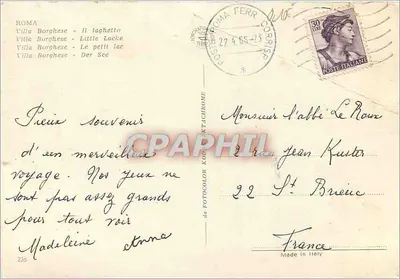 ROMA
Villa Borghese - Il laghetto
Villa Borghese - Little Lacke
Villa Borghese - Le petit lac
Villa Borghese - Der See
Pieux souvenir
d'un merveilleux
voyage. Nos yeux ne
sont pas assez grands
pour tout voir
Madeleine Anna
220
da FOTOCOLOR KODAK EKTACHROME
ROMA FERR. CORRISP.
POSTE
30
POSTE ITALIANE
Monsieur l'abbé Le Roux
rue Jean Kuster
22 St Brieuc
France
Made in Italy
CPAPHIL